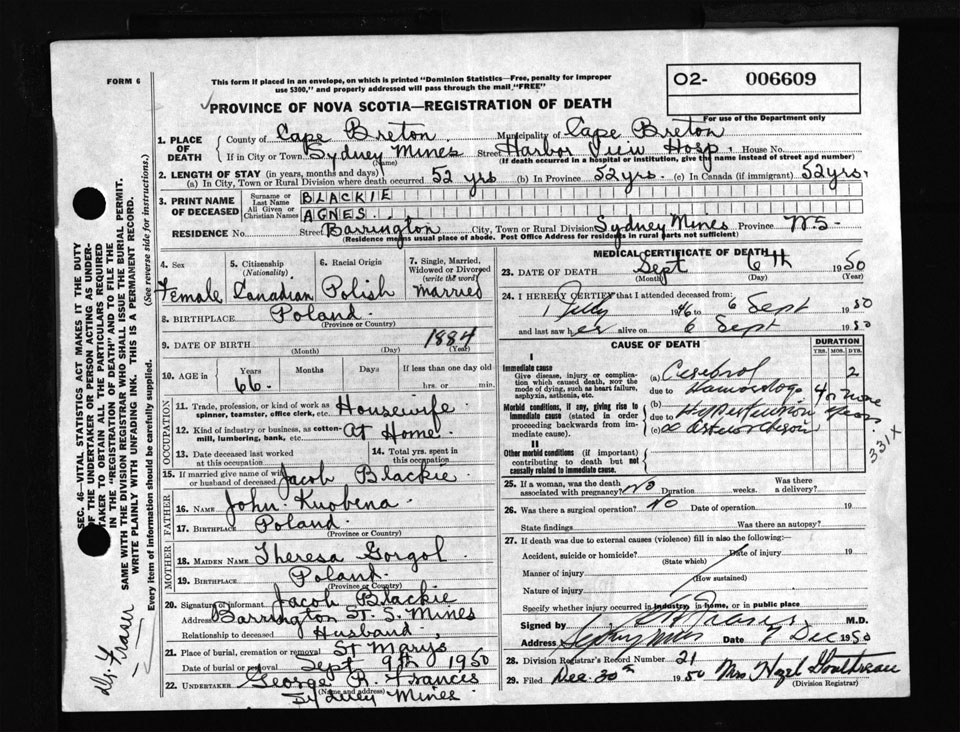 FORM 6
This form if placed in an envelope, on which is printed "Dominion Statistics—Free, penalty for improper
use $300," and properly addressed will pass through the mail "FREE"
O2- 006609
For use of the Department only
PROVINCE OF NOVA SCOTIA—REGISTRATION OF DEATH
1. PLACE OF DEATH
County of Cape Breton Municipality of Cape Breton
If in City or Town Sydney Mines Street Harbor View Hosp. House No.
(Name) (If death occurred in a hospital or institution, give the name instead of street and number)
2. LENGTH OF STAY (in years, months and days)
(a) In City, Town or Rural Division where death occurred 52 yrs (b) In Province 52 yrs. (c) In Canada (if immigrant) 52 yrs.
3. PRINT NAME OF DECEASED
Surname or Last Name BLACKIE
All Given or Christian Names AGNES.
RESIDENCE No. Street Barrington City, Town or Rural Division Sydney Mines Province N.S-
(Residence means usual place of abode. Post Office Address for residents in rural parts not sufficient)
4. Sex Female
5. Citizenship (Nationality) Canadian
6. Racial Origin Polish
7. Single, Married, Widowed or Divorced (write the word) Married
8. BIRTHPLACE Poland
(Province or Country)
9. DATE OF BIRTH 1884
(Month) (Day) (Year)
10. AGE in Years 66 - Months Days If less than one day old
hrs. or min.
OCCUPATION
11. Trade, profession, or kind of work as spinner, teamster, office clerk, etc. Housewife
12. Kind of industry or business, as cotton-mill, lumbering, bank, etc. At Home
13. Date deceased last worked at this occupation
14. Total yrs. spent in this occupation
15. If married give name of wife or husband of deceased Jacob Blackie
FATHER
16. Name John Kuobena
17. Birthplace Poland
(Province or Country)
MOTHER
18. MAIDEN NAME Theresa Gorgol
19. Birthplace Poland
(Province or Country)
20. Signature of informant Jacob Blackie
Address Barrington ST. S. Mines
Relationship to deceased Husband
21. Place of burial, cremation or removal St Marys
Date of burial or removal Sept 9th 1950
22. UNDERTAKER George R. Francis
(Name and address)
Sydney Mines
MEDICAL CERTIFICATE OF DEATH
23. DATE OF DEATH Sept 6th 1950
(Month) (Day) (Year)
24. I HEREBY CERTIFY that I attended deceased from
1946 to 6 Sept 1950
and last saw her alive on 6 Sept 1950
CAUSE OF DEATH
DURATION
YRS. MOS. DYS.
I
Immediate cause
Give disease, injury or complication which caused death, NOT the mode of dying, such as heart failure, asphyxia, asthenia, etc.
(a) Cerebral 2
due to
Morbid conditions, if any, giving rise to immediate cause (stated in order proceeding backwards from immediate cause).
due to Hypertension 4 or more years
(c)
331X
II
Other morbid conditions (if important) contributing to death but not causally related to immediate cause.
25. If a woman, was the death associated with pregnancy? No Duration weeks. Was there a delivery?
26. Was there a surgical operation? No Date of operation 19
State findings Was there an autopsy?
27. If death was due to external causes (violence) fill in also the following:
Accident, suicide or homicide? Date of injury 19
(State which)
Manner of injury
(How sustained)
Nature of injury
Specify whether injury occurred in industry, in home, or in public place
Signed by M.D.
Address Sydney Mines Date 7 Dec 1950
28. Division Registrar's Record Number 21
29. Filed Dec. 30th 1950 Mrs Hazel
(Division Registrar)
SEC. 46—VITAL STATISTICS ACT MAKES IT THE DUTY
OF THE UNDERTAKER OR PERSON ACTING AS UNDER-
TAKER TO OBTAIN ALL THE PARTICULARS REQUIRED
IN THE "REGISTRATION OF DEATH" AND TO FILE THE
SAME WITH THE DIVISION REGISTRAR WHO SHALL ISSUE THE BURIAL PERMIT.
WRITE PLAINLY WITH UNFADING INK. THIS IS A PERMANENT RECORD.
(See reverse side for instructions.)
Every item of information should be carefully supplied.
Fraser